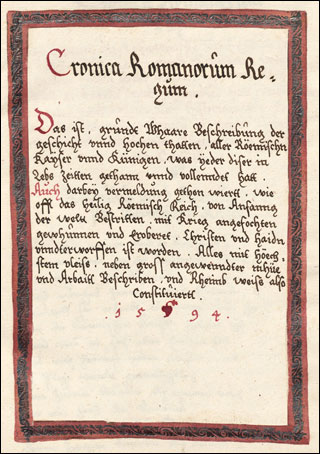 Cronica Romanorum Re=
gum.
Das ist, gründe Whaare Beschreibung der
geschicht vnnd hochen thatten, aller Röemischn
Kayser vnnd Künigen, was yeder diser in
Lebs Zeitten gethann vnnd volleindet hatt.
Auch darbey vermeldung gethon wiertt, wie
offt das heilig Röemisch Reich, von Anfanng
der welt Bestritten, mit Krieg angefochten
gewhunnen vnd Eroberet, Christen vnd Haidn
vnndterworffen ist worden. Alles mit höech=
stem vleiss, neben gross angewenndter mhüe
vnd Arbaitt Beschriben, vnd Rheimb weiss also
Constituiertt.
1594.